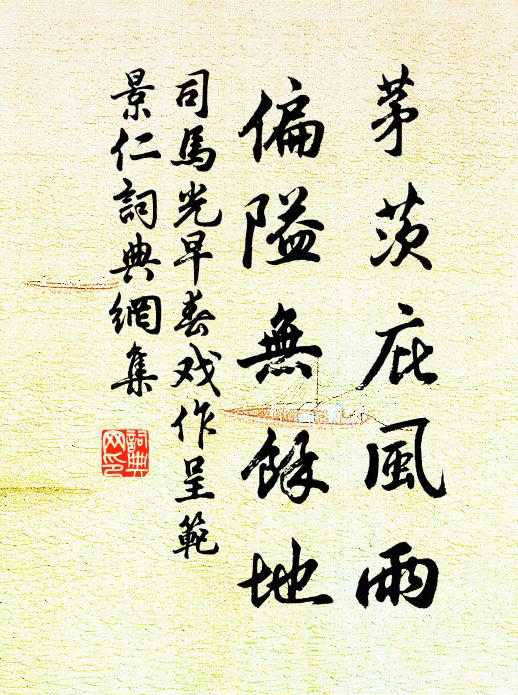 茅茨庇風雨
偏隘無餘地
司馬光早春戏作呈範
景仁詞典網集
詞典
网印